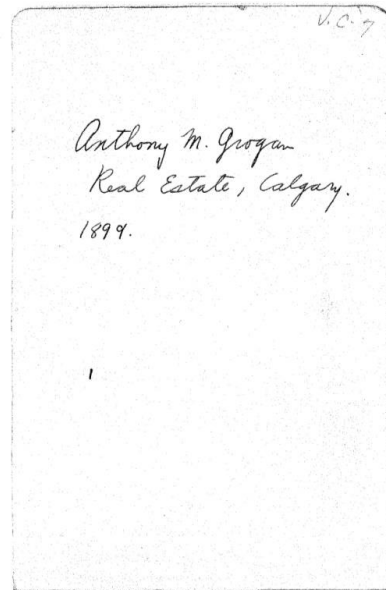 V.C.7
Anthony M. Grogan
Real Estate, Calgary.
1899.
1